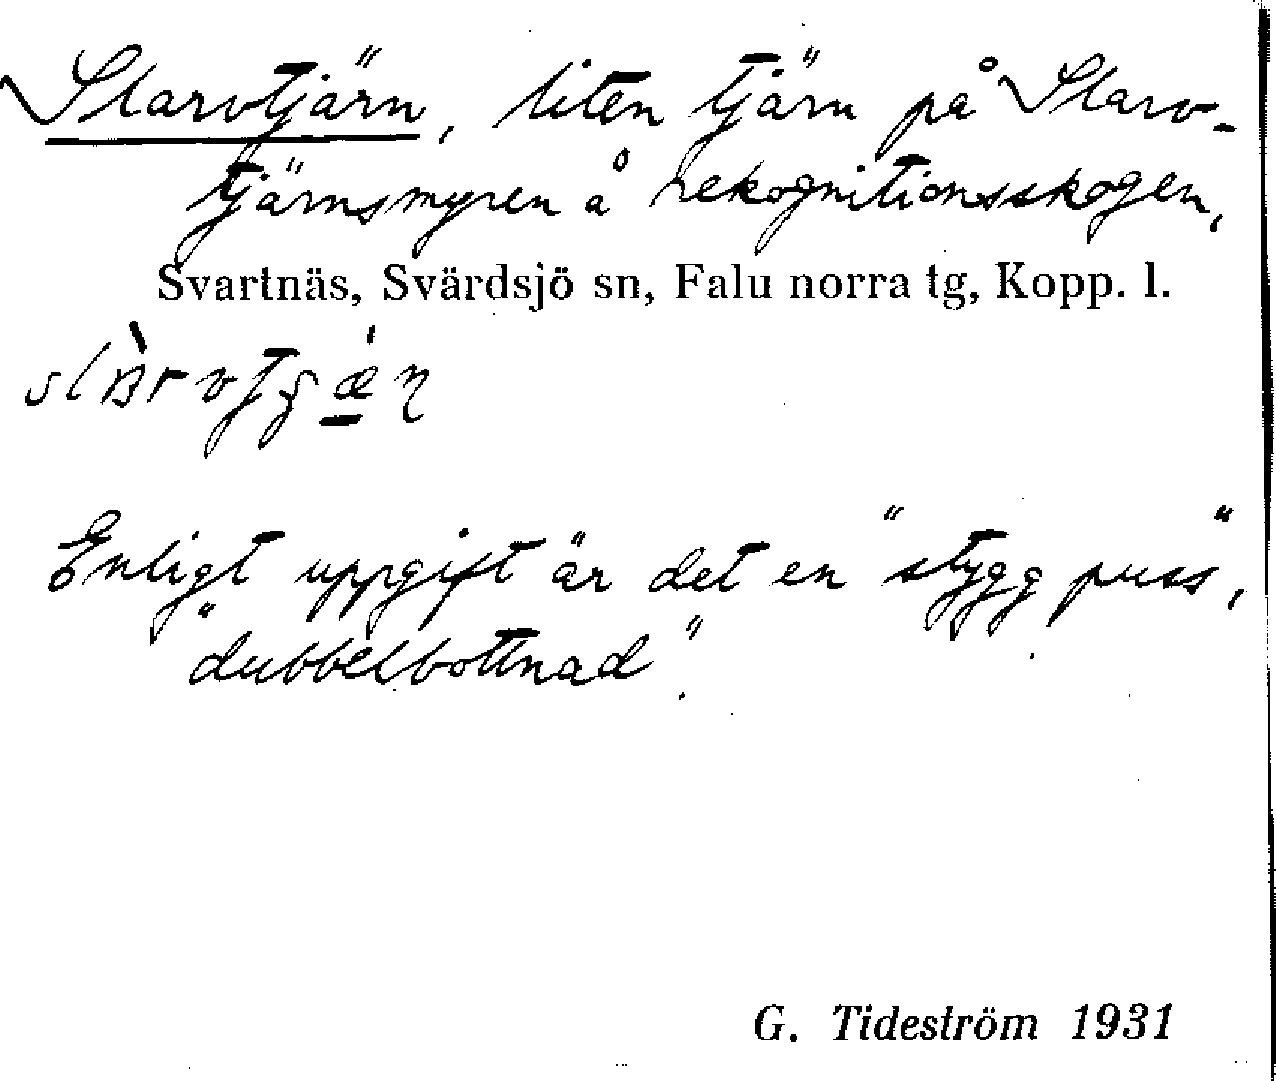 Slarvtjärn, liten tjärn på Slarv-
tjärnsmyren å rekognitionsskogen,
Svartnäs, Svärdsjö sn, Falu norra tg, Kopp. l.
Enligt uppgift är det en "stygg puss",
"dubbelbottnad".
G. Tideström 1931